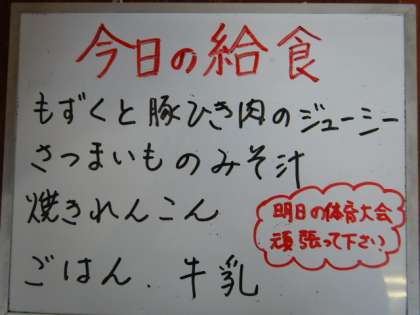 今日の給食
もずくと豚ひき肉のジューシー
さつまいものみそ汁
焼きれんこん
ごはん.牛乳
明日の体育大会
頑張って下さい